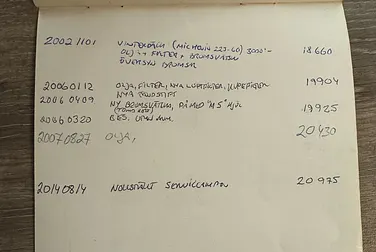 20021101 VINTERDÄCK (MICHELIN 225-60) 3000:- 18660
OLJA + FILTER + BROMSVÄTSKA
20060112 OLJA, FILTER, NYA LUFTFILTER, KUPEFILTER 19904
NYA TÄNDSTIFT
20060409 NY BROMSVÄTSKA, PÅ MED "M5" HJUL 19925
20060320 BES.
20070827 OLJA, 20430
20140814 NOLLSTÄLLT SERVICELAMPAN 20975